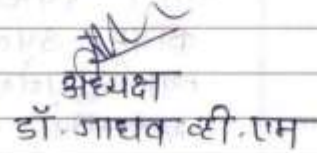 अध्यक्ष
डॉ. जाधव व्ही. एम